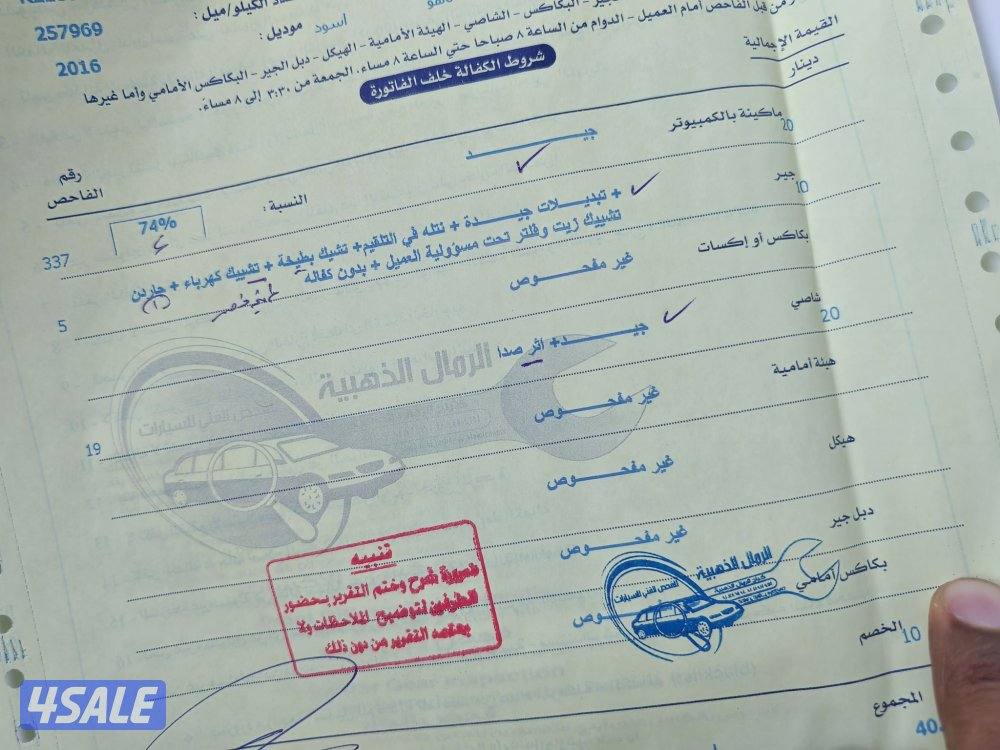 الكيلو/ميل :
257969
أسود موديل :
2016
من قبل الفاحص أمام العميل - الدوام من الساعة ٨ صباحا حتى الساعة ٨ مساء. الجمعة من ٣:٣٠ إلى ٨ مساءً.
الجير - البكاكس - الشاصي - الهيئة الأمامية - الهيكل - دبل الجير - البكاكس الأمامي وأما غيرها
شروط الكفالة خلف الفاتورة
القيمة الإجمالية
دينار
رقم
الفاحص
ماكينة بالكمبيوتر
20
جيد
النسبة :
74%
337
جير
10
+ تبديلات جيدة + نتله في التلقيم+ تشيك بطيخة + تشييك كهرباء + جاردن (١)
تشييك زيت وفلتر تحت مسؤولية العميل + بدون كفالة
5
بكاكس أو إكسات
غير مفحوص
شاصي
20
جيد+ أثر صدا
19
هيئة أمامية
غير مفحوص
هيكل
غير مفحوص
دبل جير
غير مفحوص
بكاكس أمامي
غير مفحوص
الخصم
10
المجموع
40
الرمال الذهبية
الفحص الفني للسيارات
تنبيه
ضرورة شرح وختم التقرير بحضور
الطرفين لتوضيح الملاحظات ولا
يعتمد التقرير من دون ذلك
الرمال الذهبية
الفحص الفني للسيارات
4SALE